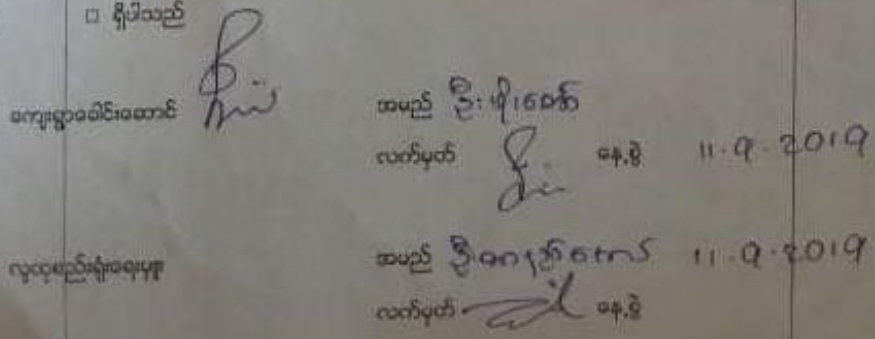 □ ရှိပါသည်
ကျေးရွာခေါင်းဆောင် အမည် ဦး
လက်မှတ် နေ့စွဲ 11.9.2019
လူထုစည်းရုံးရေးမှူး အမည် ဦး 11.9.2019
လက်မှတ် နေ့စွဲ